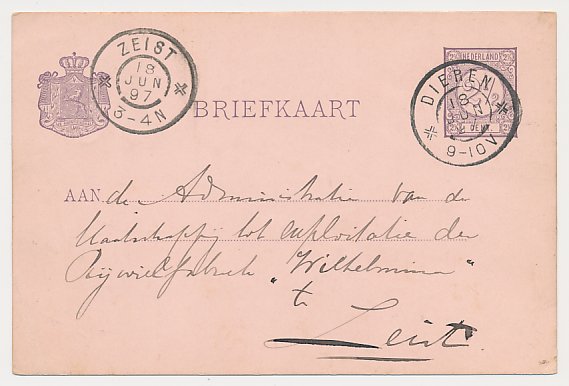 ZEIST
18
JUN
97
3-4N
BRIEFKAART
NEDERLAND
2½ 2½
CENT.
DIEREN
18
JUN
97
9-10V
AAN de Administratie van de
Maatschappij tot exploitatie der
Rijwielfabriek "Wilhelmina"
te
Zeist.